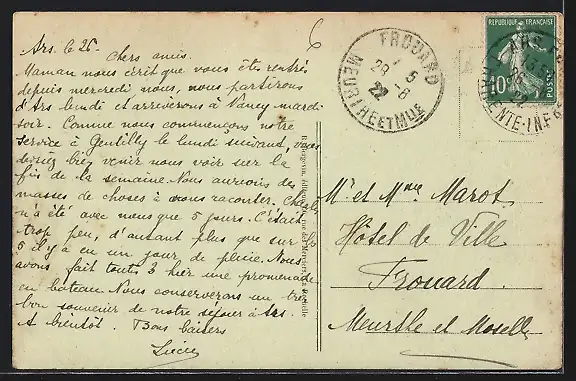 Ars. le 25-
Chers amis.
Maman nous écrit que vous êtes rentrés
depuis mercredi nous, nous partirons
d'Ars lundi et arriverons à Nancy mardi
soir. Comme nous commençons notre
service à Gentilly le lundi suivant, vous
devriez bien venir nous voir sur la
fin de la semaine. Nous aurions des
masses de choses à vous raconter. Charles
n'a été avec nous que 5 jours. C'était
trop peu, d'autant plus que sur les
5 il y a eu un jour de pluie. Nous
avons fait tous 3 hier une promenade
en bateau. Nous conserverons un très
bon souvenir de notre séjour à Ars.
A bientôt. Bons baisers
Lucie
6
FROUARD
7 5
28 -8
22
MEURTHE ET MLLE
REPUBLIQUE FRANÇAISE
10c
POSTES
M. et Mme Marot
Hôtel de Ville
Frouard.
Meurthe et Moselle